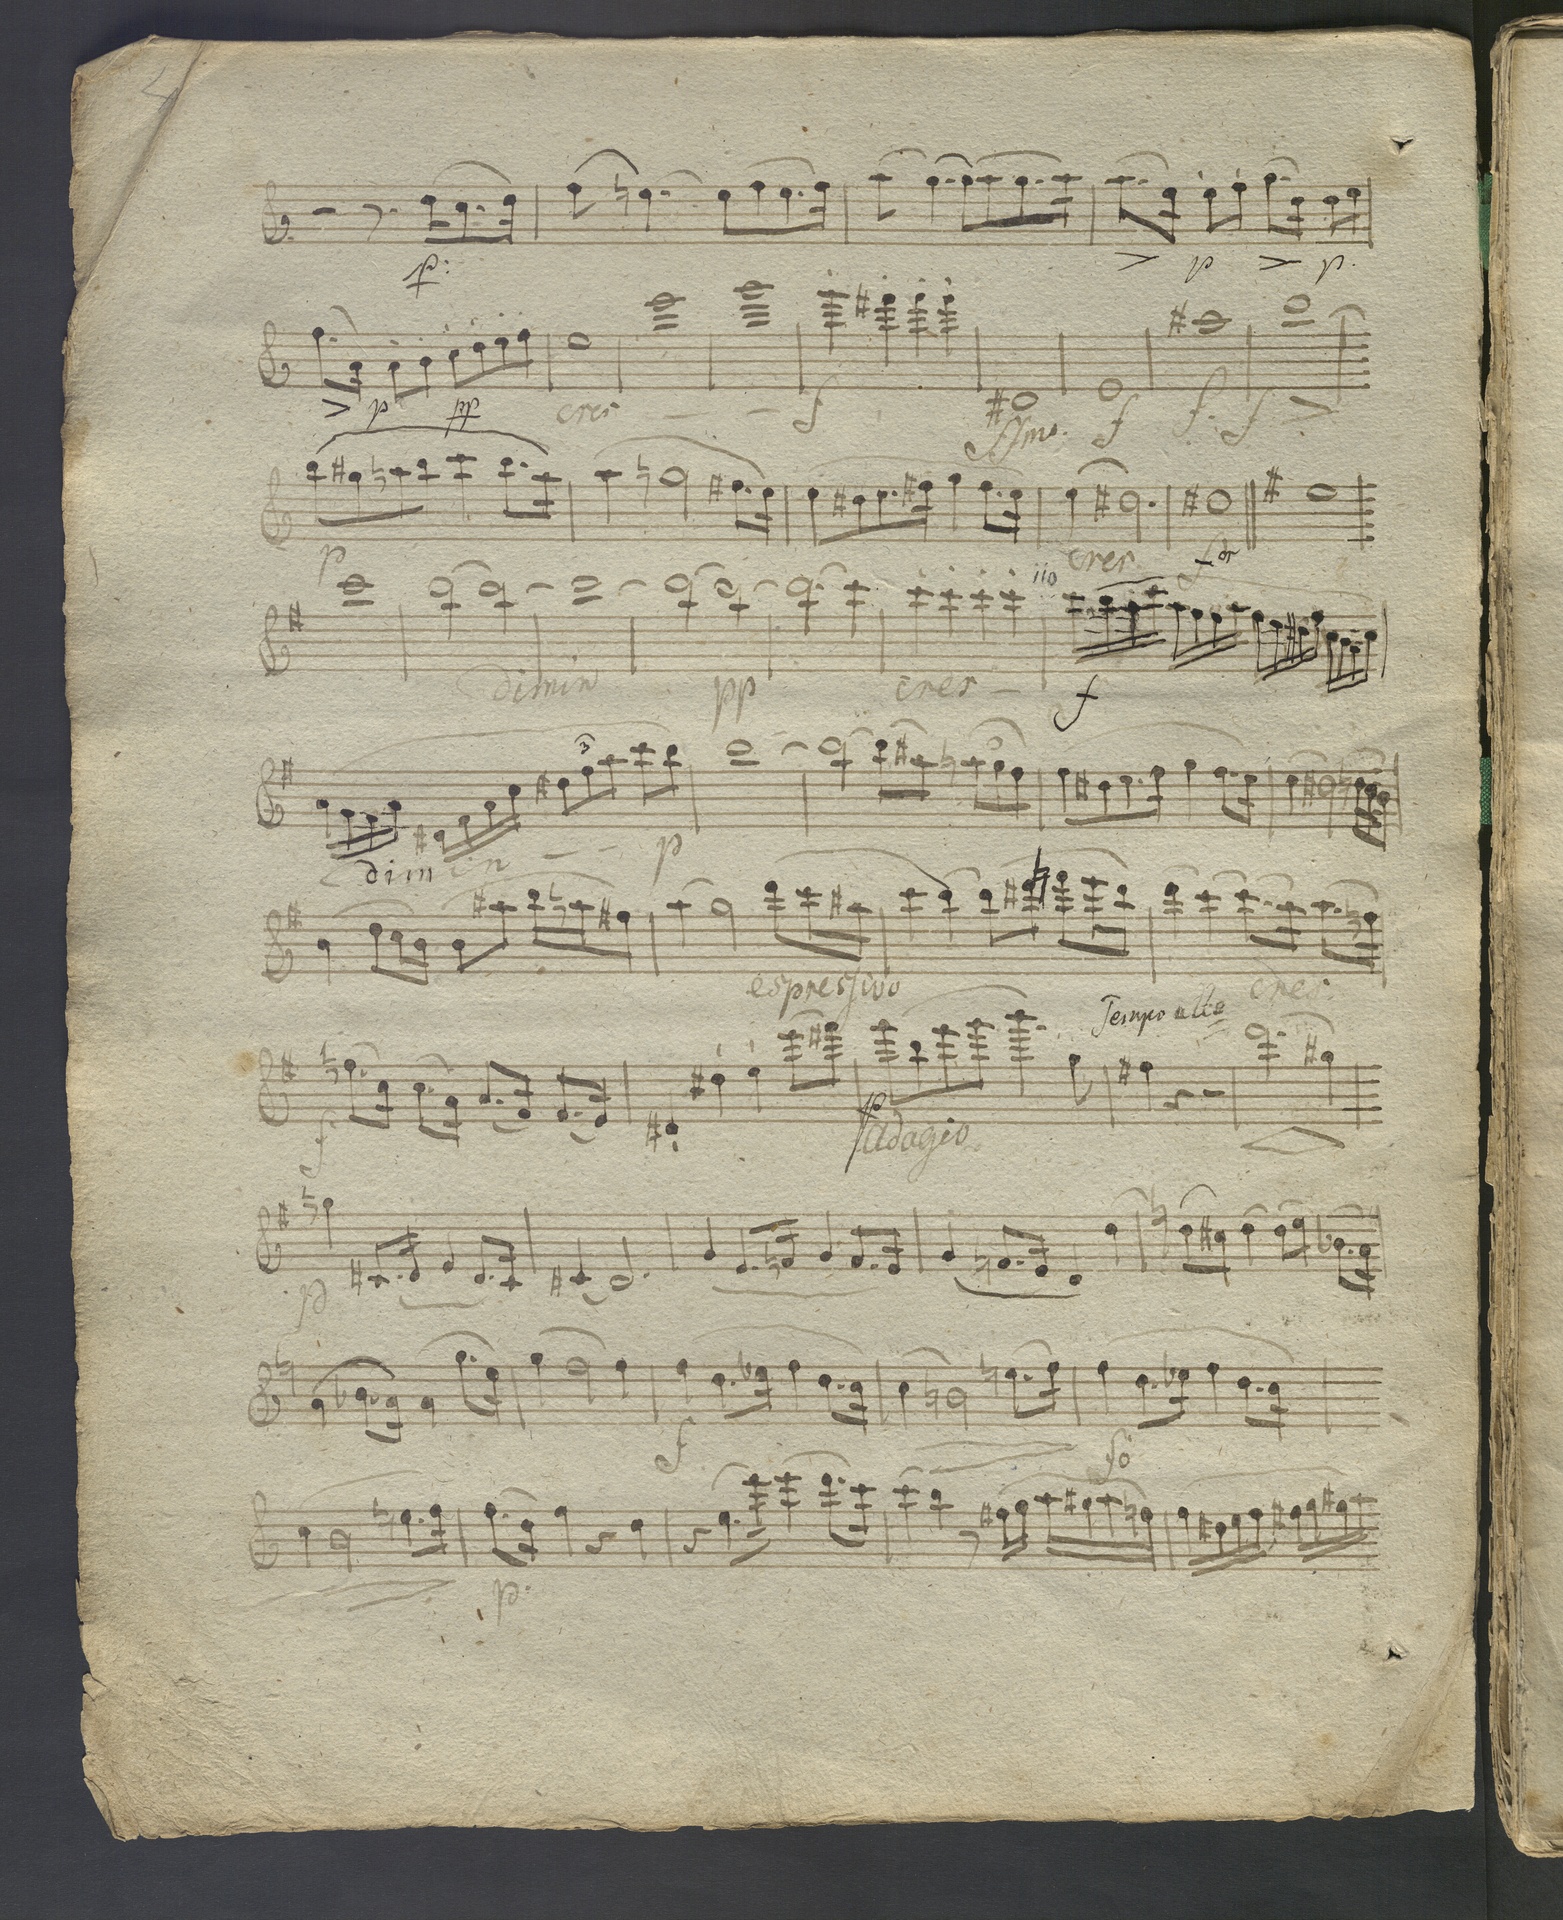 p:
> p > p.
> p pp cres - - f ffmo. f f. f >
p cres for
iio
dimin pp cres - f
3
dimin - - p
espressivo cres
Tempo alla
f adagio
p
f fo
p.